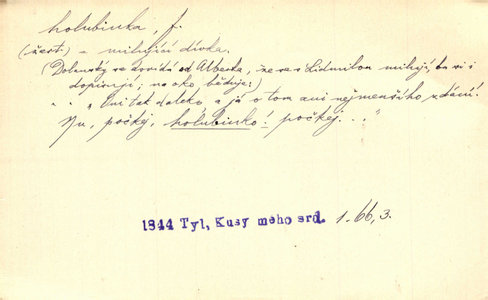 holubinka, f.
(žert.) = milující dívka.
(Dolanský se dovídá od Alberta, že se s Lidmilou milují, ba si i
dopisují; na oko běduje:)
" . . „ Oni tak daleko a já o tom ani nejmenšího zdání!
Nu, počkej, holubinko! počkej . . . "
1844 Tyl, Kusy mého srd. 1. 66, 3.